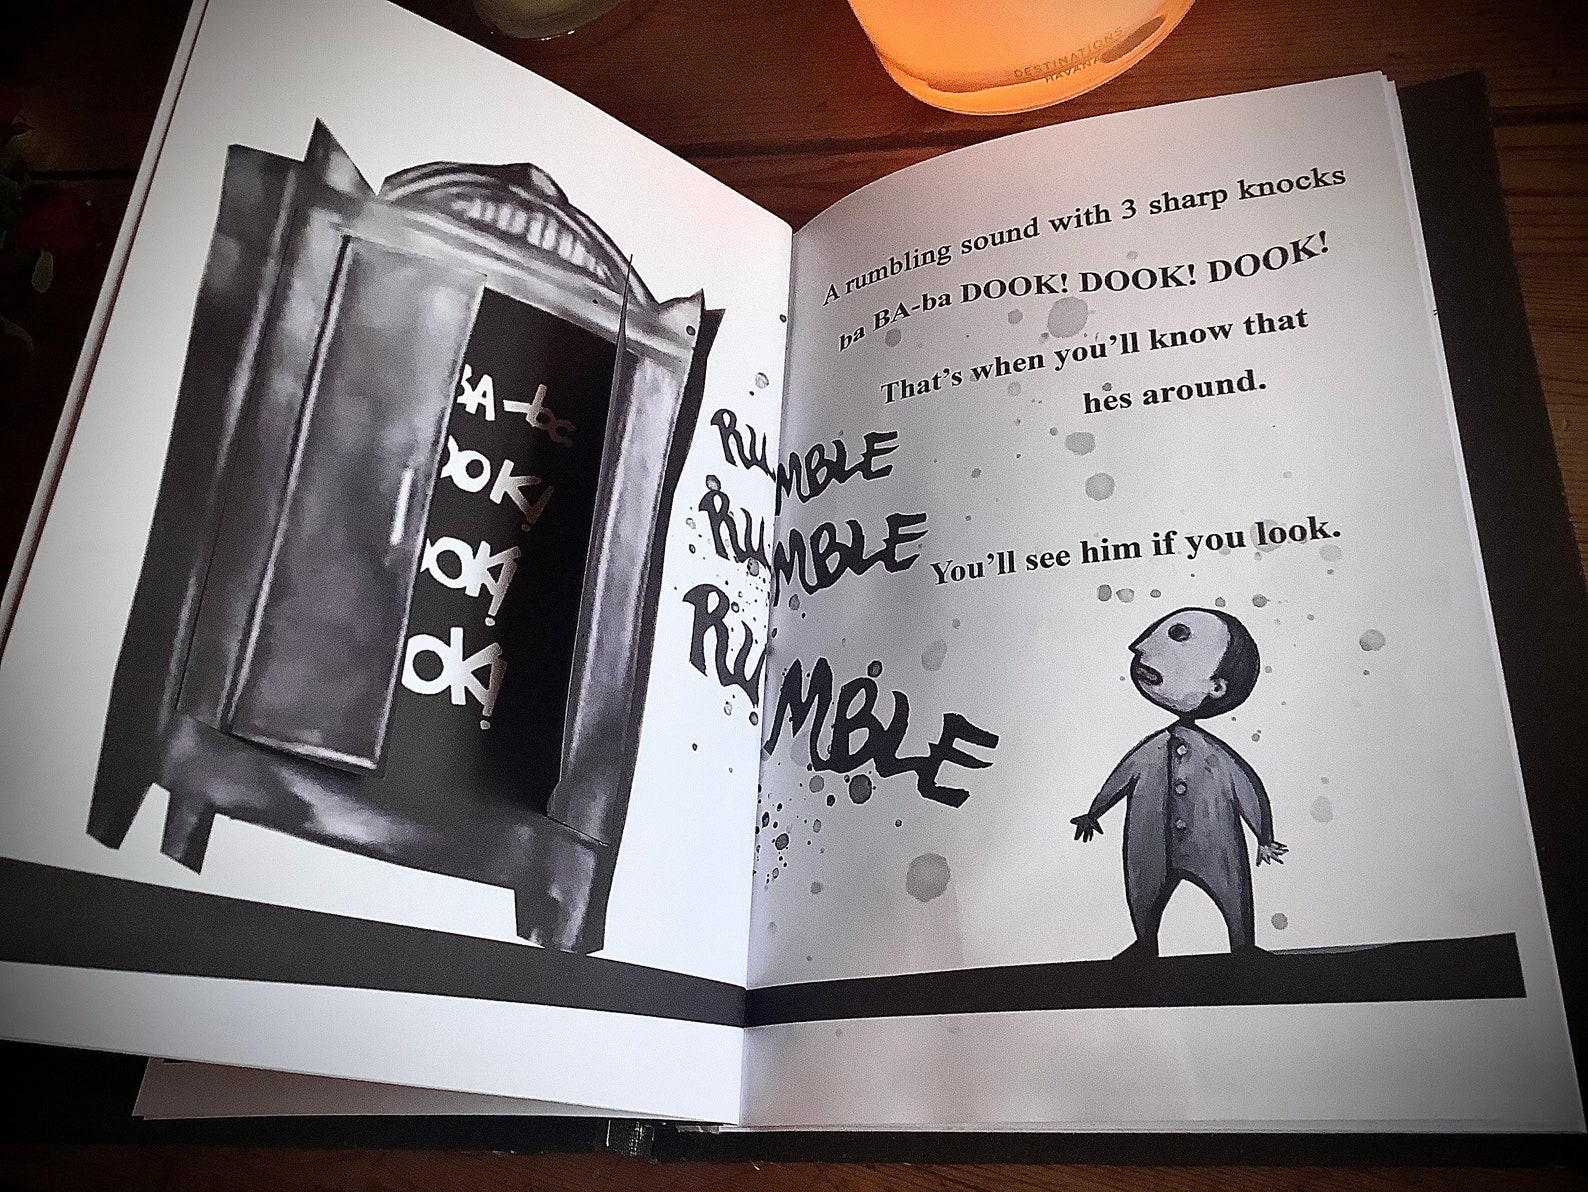 DESTINATIONS
HAVANA
BA-ba
OOK!
OOK!
OK!
RUMBLE
RUMBLE
RUMBLE
A rumbling sound with 3 sharp knocks
ba BA-ba DOOK! DOOK! DOOK!
That's when you'll know that
hes around.
You'll see him if you look.